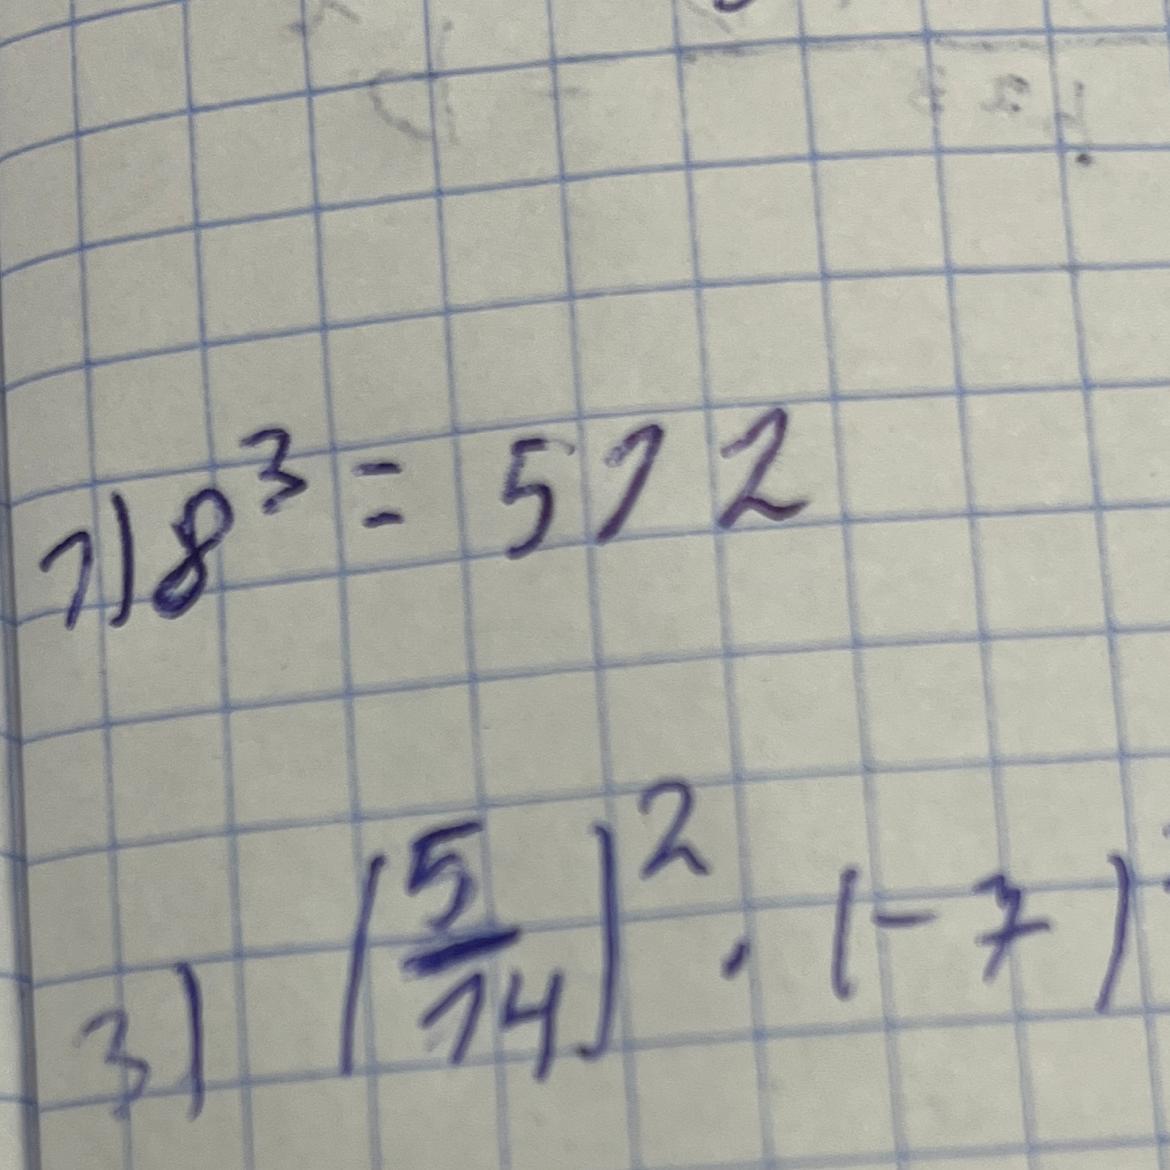 1) 8³ = 512
3) (5/14)² · (-7)